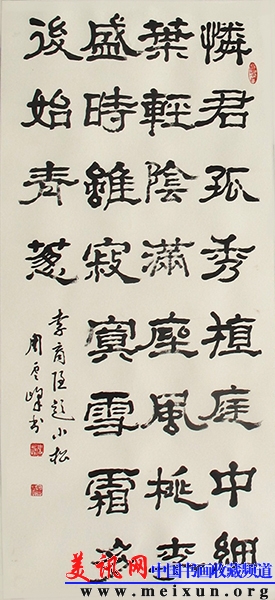 憐君孤秀植庭中細
葉輕陰滿座風桃李
盛時雖寂寞雪霜多
後始青蔥
李商隐题小松
周云峰书
美讯网 中国书画收藏频道
www.meixun.net